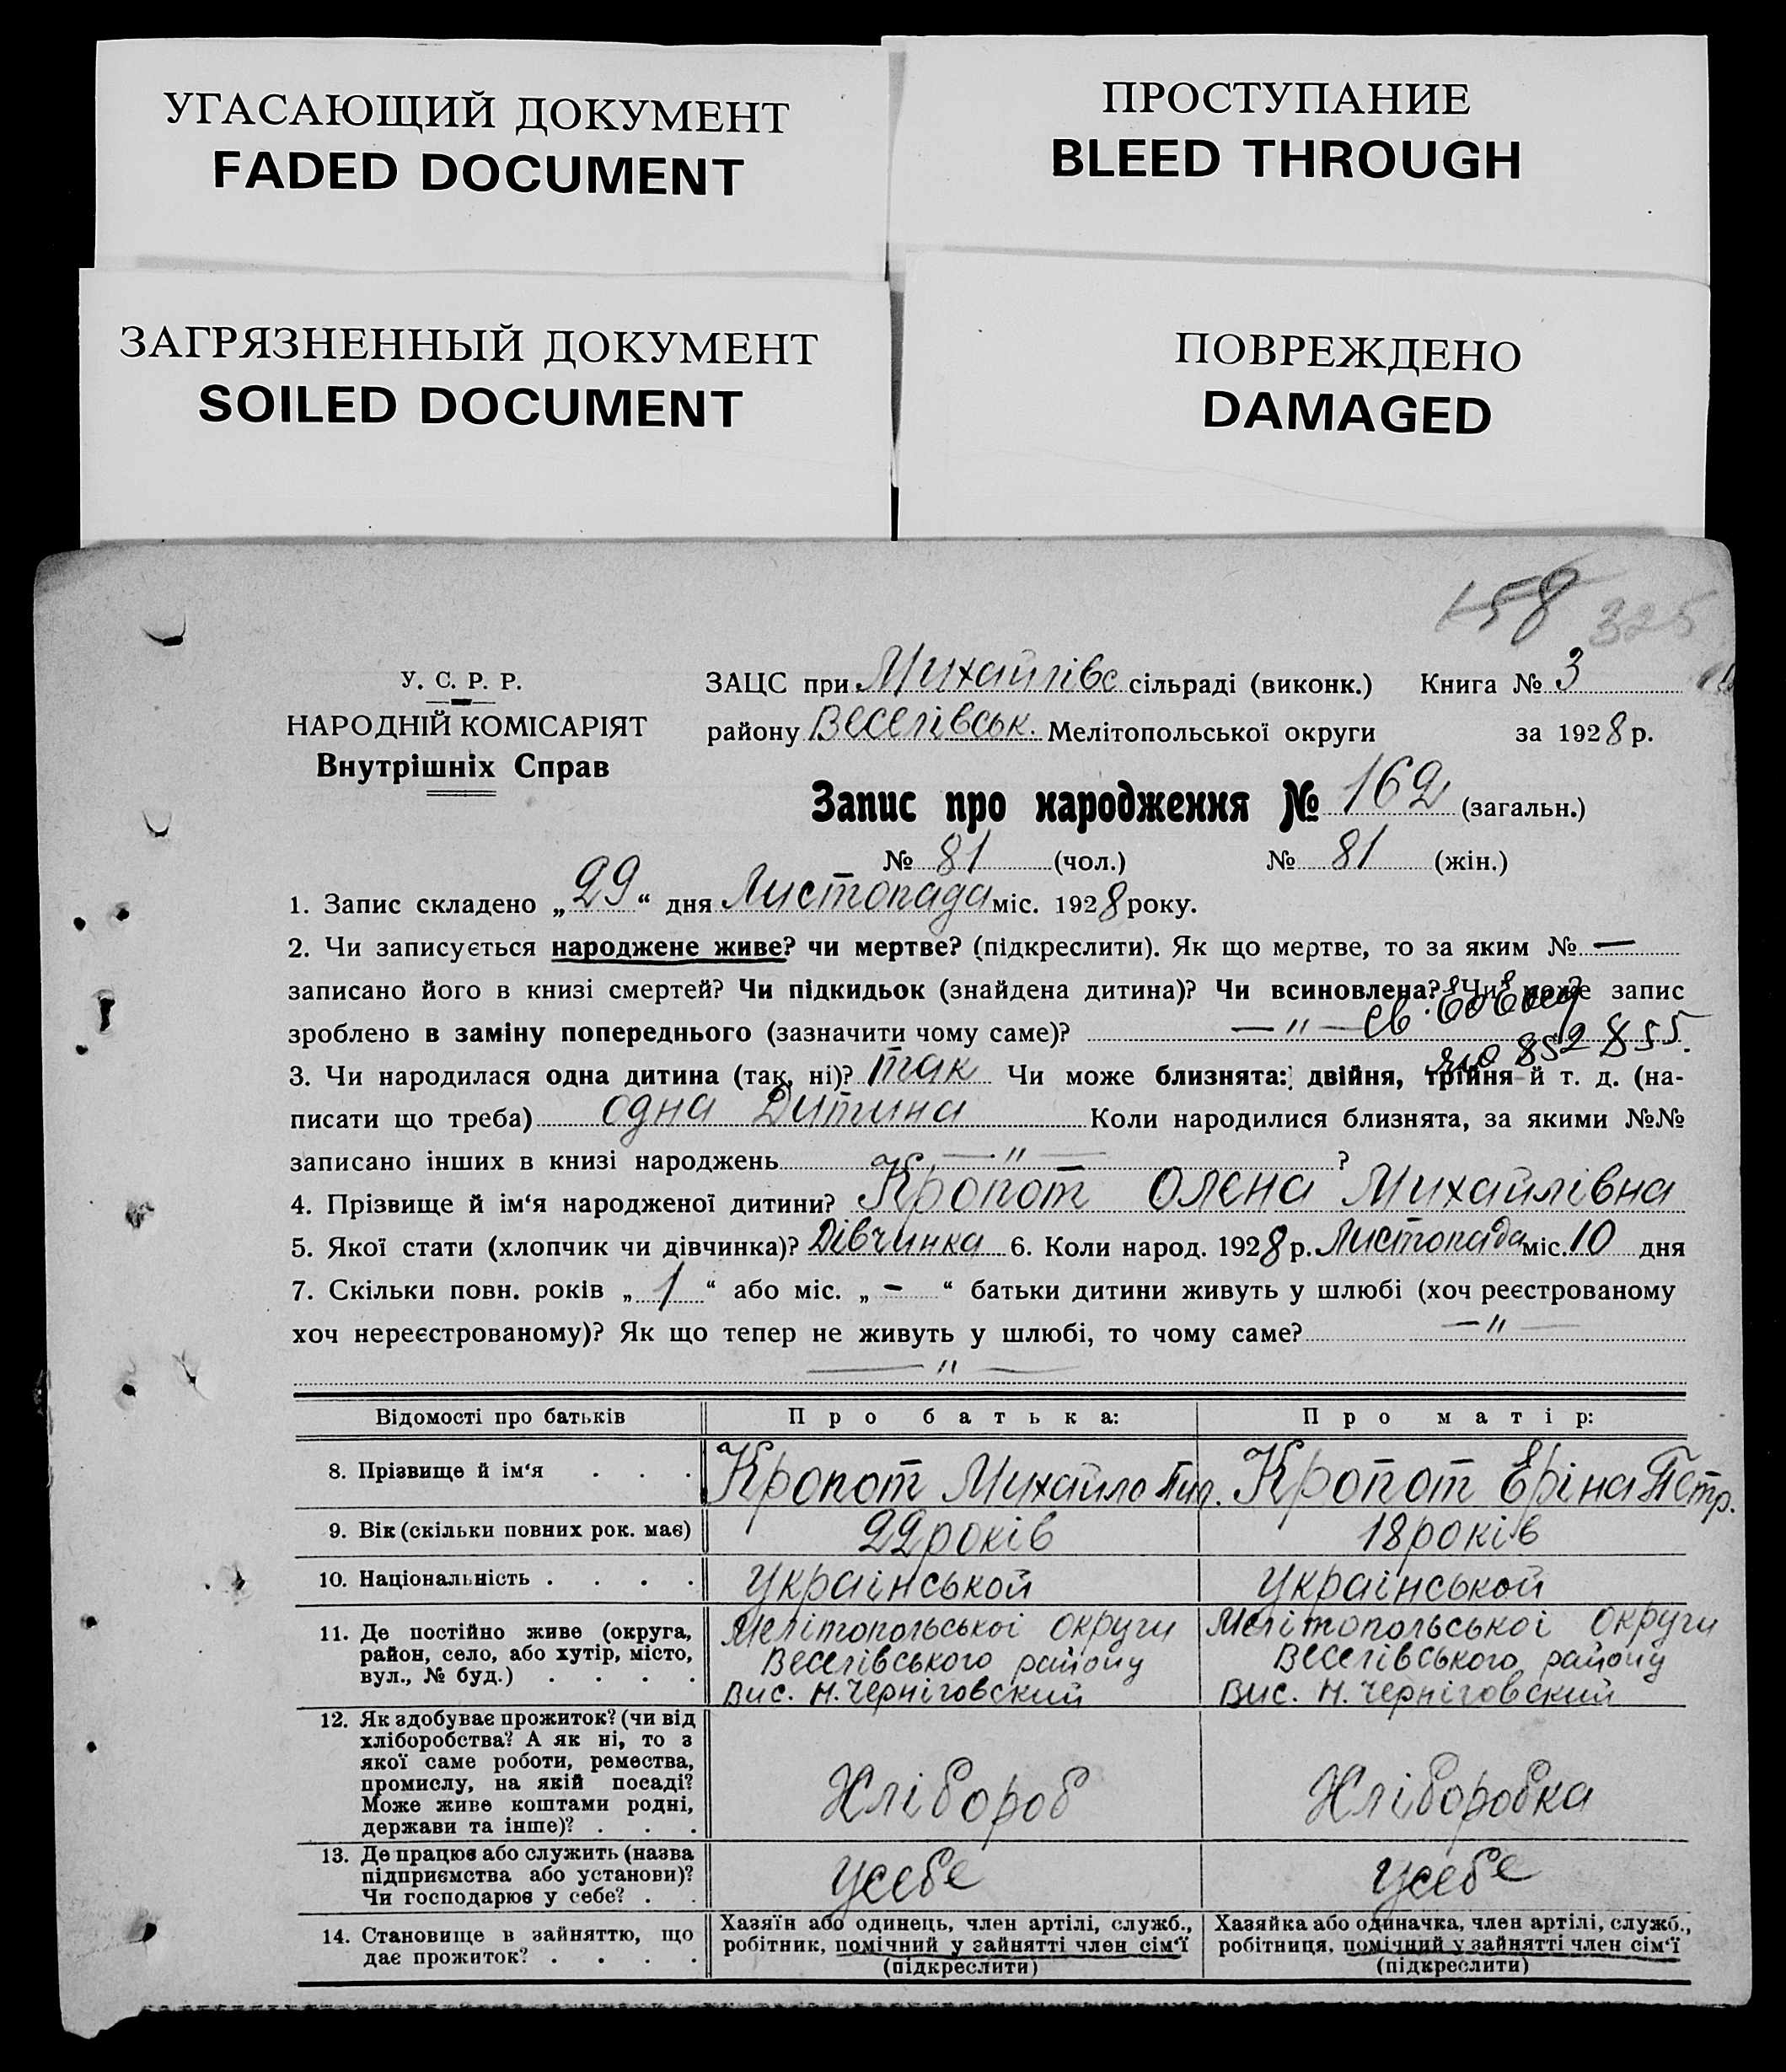 УГАСАЮЩИЙ ДОКУМЕНТ
FADED DOCUMENT
ПРОСТУПАНИЕ
BLEED THROUGH
ЗАГРЯЗНЕННЫЙ ДОКУМЕНТ
SOILED DOCUMENT
ПОВРЕЖДЕНО
DAMAGED
158 325
У. С. Р. Р.
НАРОДНІЙ КОМІСАРІЯТ
Внутрішніх Справ
ЗАЦС при Михайлівс сільраді (виконк.) Книга № 3
району Веселівськ. Мелітопольської округи за 1928 р.
Запис про народження № 162 (загальн.)
№ 81 (чол.) № 81 (жін.)
1. Запис складено „29“ дня Листопада міс. 1928 року.
2. Чи записується народжене живе? чи мертве? (підкреслити). Як що мертве, то за яким № —
записано його в книзі смертей? Чи підкидьок (знайдена дитина)? Чи всиновлена? Чи може запис
зроблено в заміну попереднього (зазначити чому саме)? — " —
852855.
3. Чи народилася одна дитина (так, ні)? так Чи може близнята: двійня, трійня й т. д. (на-
писати що треба) одна Дитина Коли народилися близнята, за якими №№
записано інших в книзі народжень — " — ?
4. Прізвище й ім‘я народженої дитини? Кропот Олена Михайлівна
5. Якої стати (хлопчик чи дівчинка)? Дівчинка 6. Коли народ. 1928 р. Листопада міс. 10 дня
7. Скільки повн. років „ 1 “ або міс. „ - “ батьки дитини живуть у шлюбі (хоч реєстрованому
хоч нереєстрованому)? Як що тепер не живуть у шлюбі, то чому саме? — " —
— " —
Відомості про батьків Про батька: Про матір:
8. Прізвище й ім‘я . . . Кропот Михайло Пил. Кропот Еріна Петр.
9. Вік (скільки повних рок. має) 22 років 18 років
10. Національність . . . . Українськой Українськой
11. Де постійно живе (округа,
район, село, або хутір, місто,
вул., № буд.) . . . .
Мелітопольскоі округи
Веселівського району
Вис. Н. Черніговский
Мелітопольскоі округи
Веселівського району
Вис. Н. Черніговский
12. Як здобуває прожиток? (чи від
хліборобства? А як ні, то з
якої саме роботи, ремества,
промислу, на якій посаді?
Може живе коштами родні,
держави та інше)? . . .
Хлібороб
Хліборобка
13. Де працює або служить (назва
підприємства або установи)?
Чи господарює у себе? . .
Усебе
Усебе
14. Становище в зайняттю, що
дає прожиток? . . . .
Хазяїн або одинець, член артілі, служб.,
робітник, помічний у зайнятті член сім‘ї
(підкреслити)
Хазяйка або одиначка, член артілі, служб.,
робітниця, помічний у зайнятті член сім‘ї
(підкреслити)